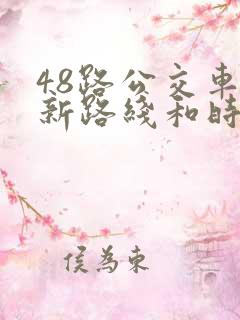 48路公交車
新路綫和時
侯為東